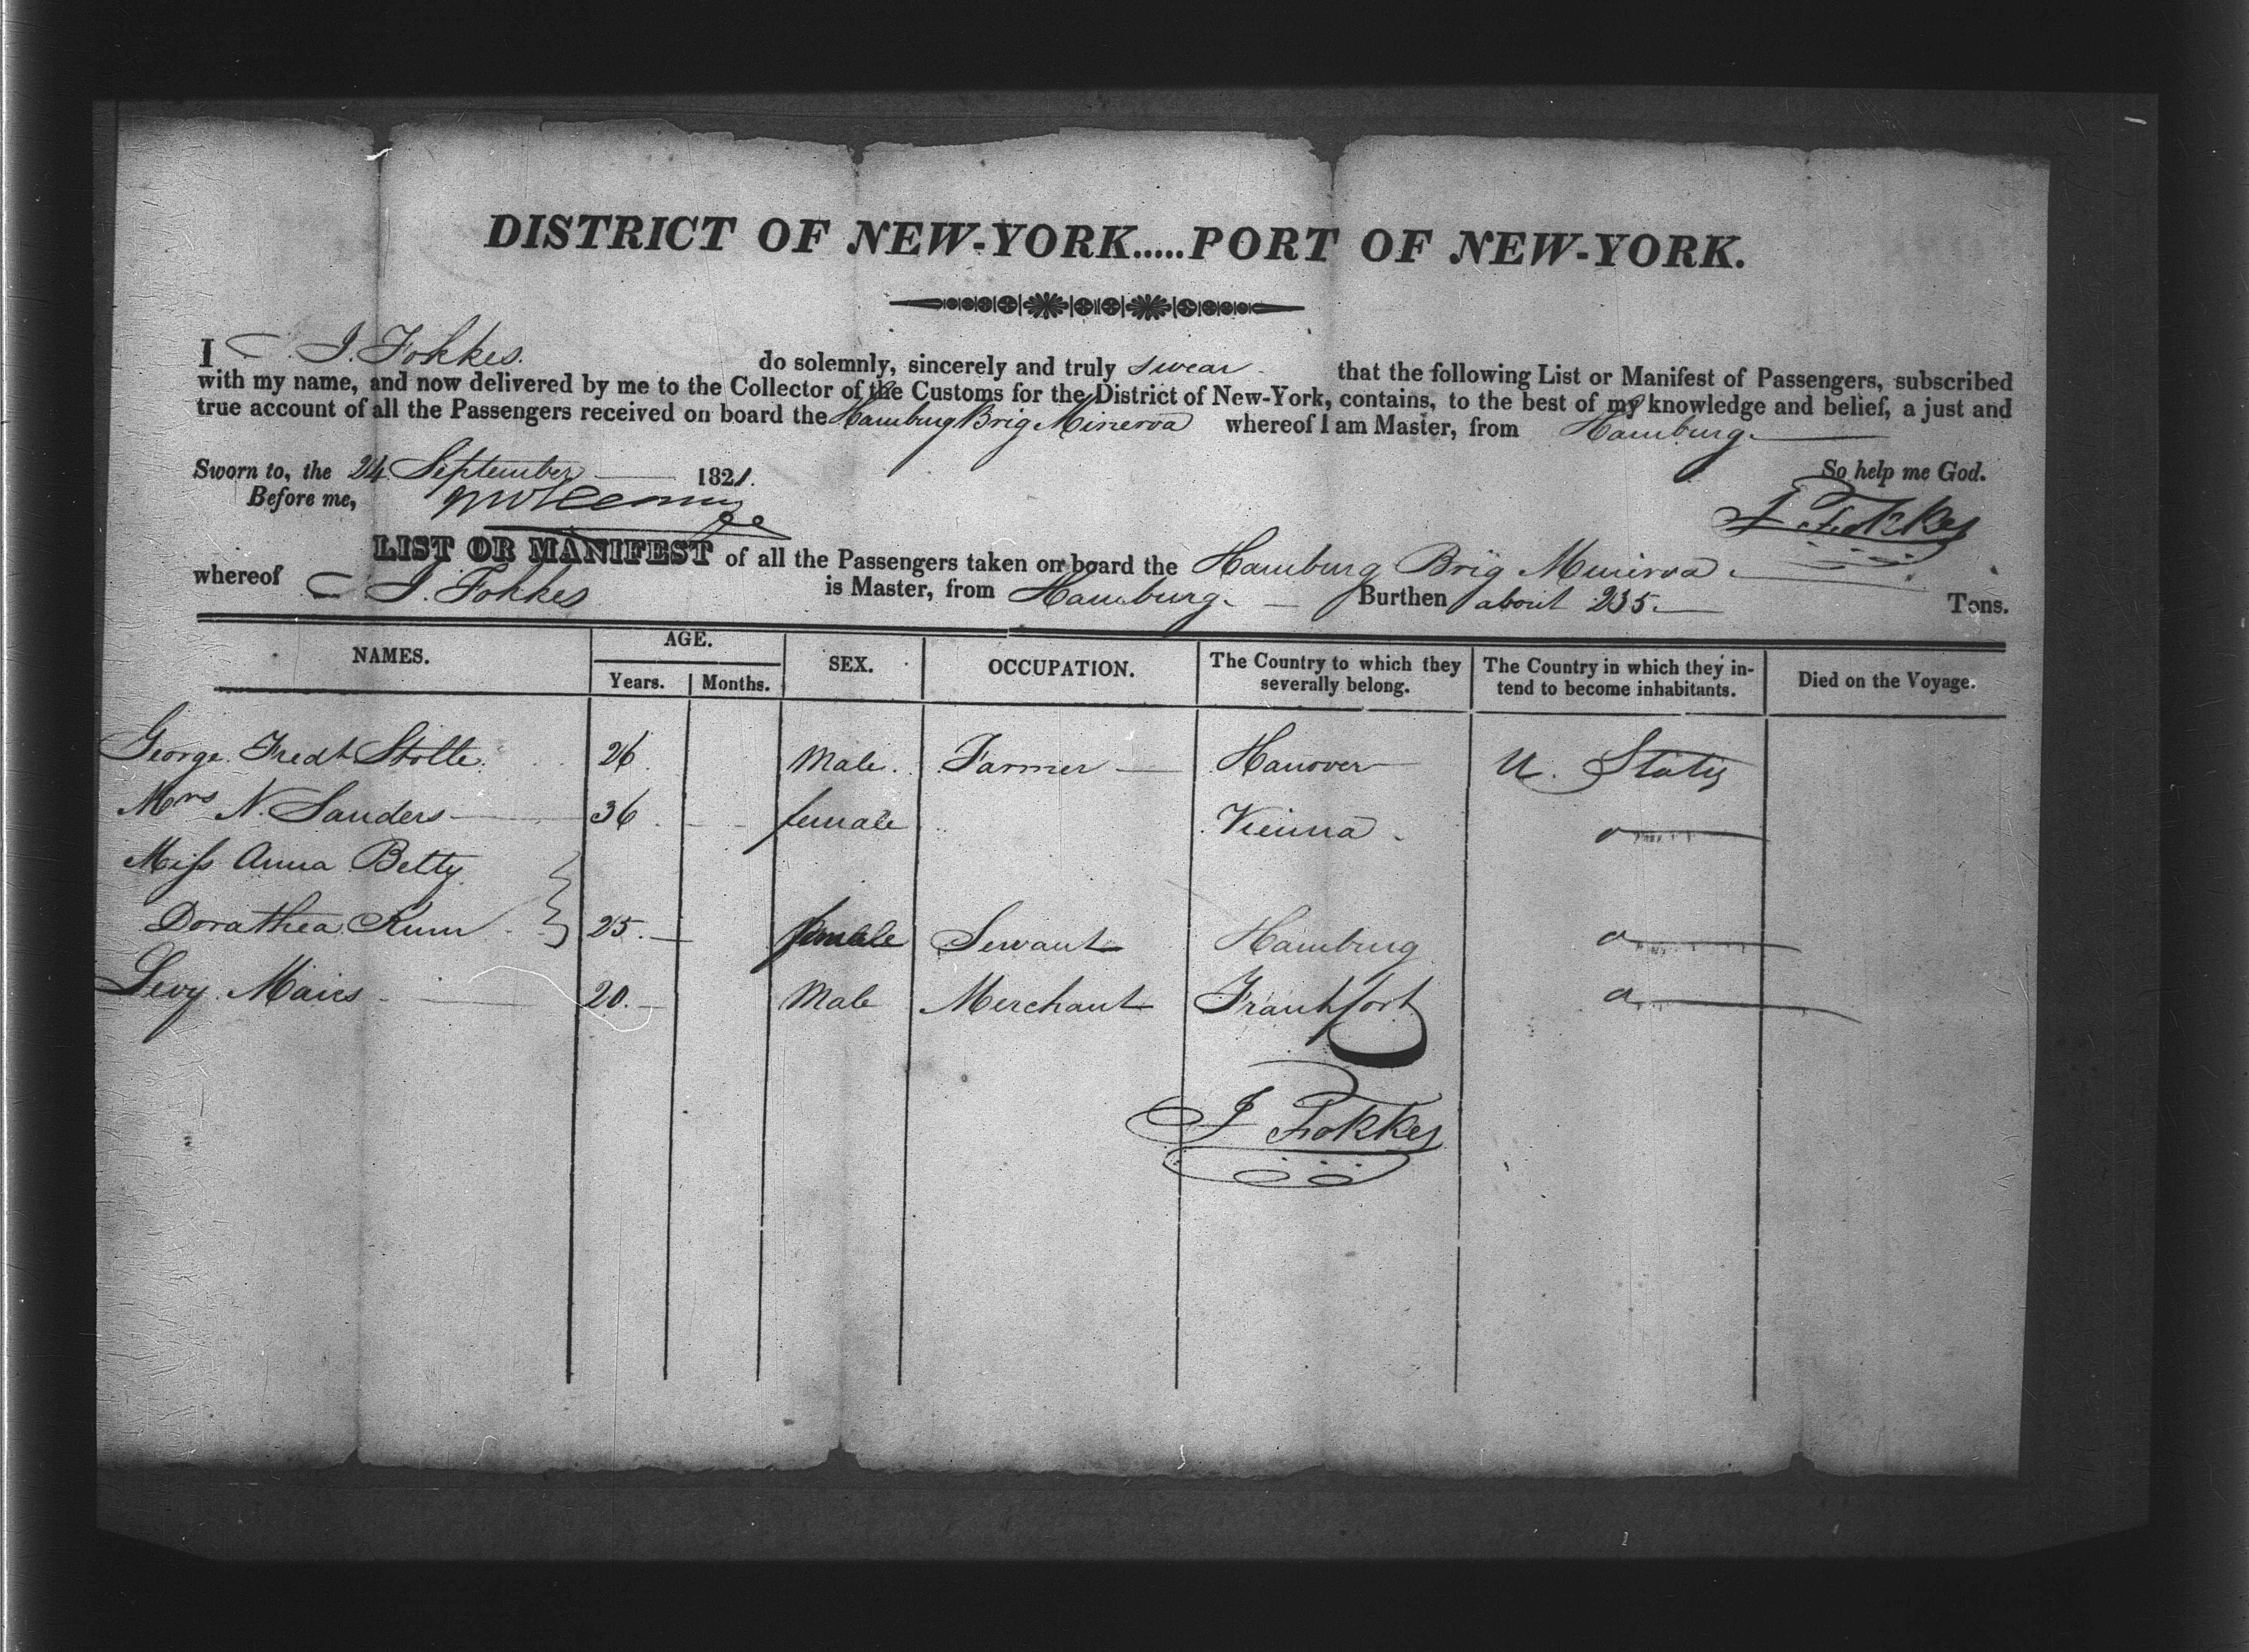 DISTRICT OF NEW-YORK.....PORT OF NEW-YORK.
I J. Fokkes. do solemnly, sincerely and truly swear that the following List or Manifest of Passengers, subscribed
with my name, and now delivered by me to the Collector of the Customs for the District of New-York, contains, to the best of my knowledge and belief, a just and
true account of all the Passengers received on board the Hamburg Brig Minerva whereof I am Master, from Hamburg.
Sworn to, the 24 September 1821. So help me God.
Before me, J Fokkes
LIST OR MANIFEST of all the Passengers taken on board the Hamburg Brig Minerva
whereof J. Fokkes is Master, from Hamburg. Burthen about 235. Tons.
NAMES. AGE. Years. Months. SEX. OCCUPATION. The Country to which they severally belong. The Country in which they intend to become inhabitants. Died on the Voyage.
George Fredk Stolte 26 Male. Farmer Hanover U. States
Mrs N. Sanders 36 female Vienna
Miss Anna Betty
Dorathea Kum 25. female Servant Hamburg
Levy Maies 20. Male Merchant Frankfort
J Fokkes